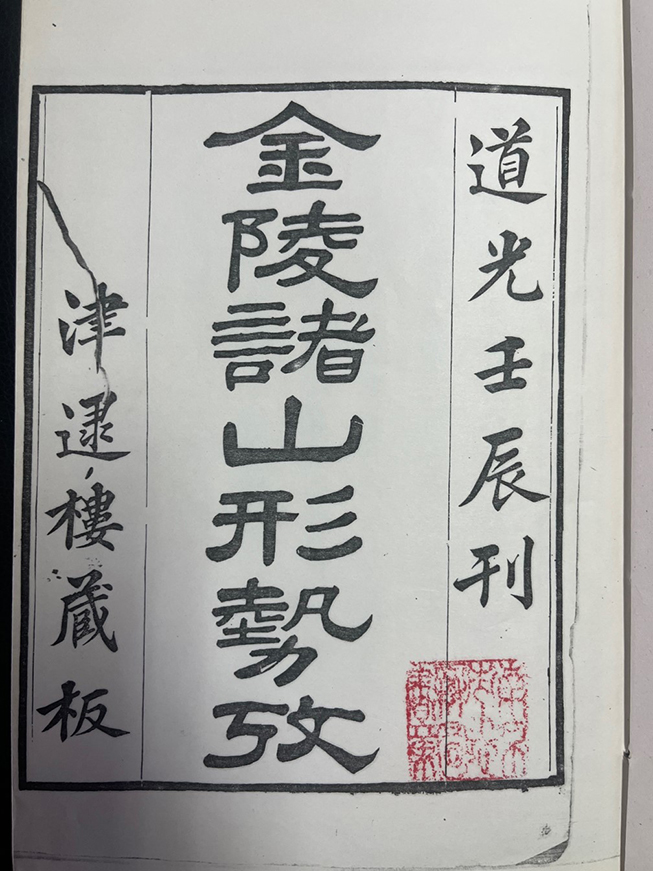 道光壬辰刊
金陵諸山形勢攷
津逮樓蔵板